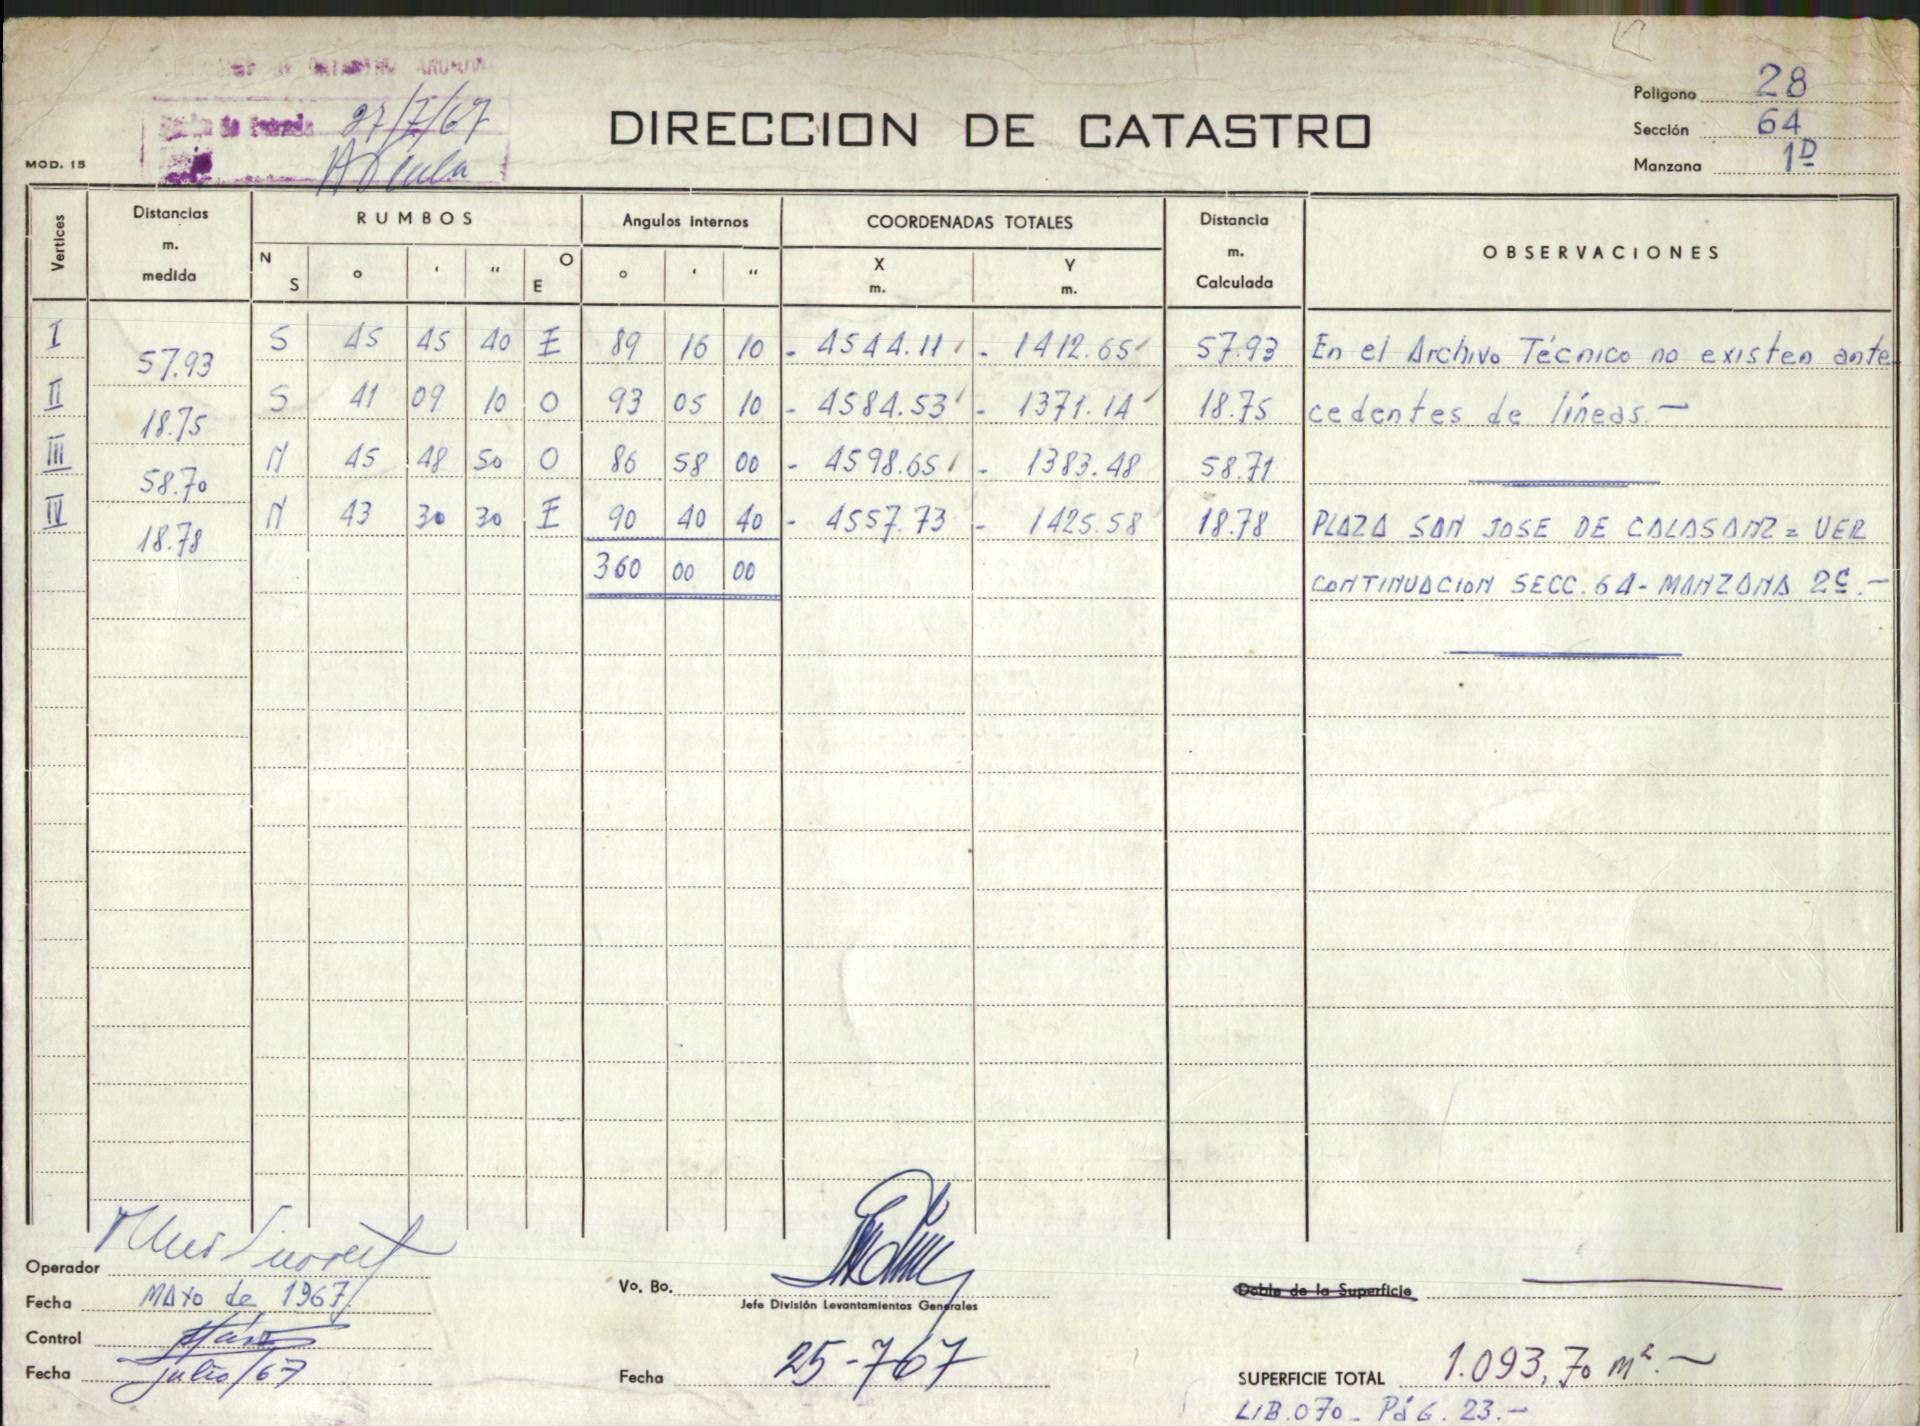 DE CATASTRO
de Entrada 27/7/67
DIRECCION DE CATASTRO
Polígono 28
Sección 64
Manzana 1D
MOD. 15
Vertices
Distancias
m.
medida
RUMBOS
N S ° ' " O E
Angulos internos
° ' "
COORDENADAS TOTALES
X
m.
Y
m.
Distancia
m.
Calculada
OBSERVACIONES
I 57.93 S 45 45 40 E 89 16 10 - 4544.11 - 1412.65 57.93 En el Archivo Técnico no existen ante
II 18.75 S 41 09 10 O 93 05 10 - 4584.53 - 1371.14 18.75 cedentes de líneas.-
III 58.70 N 45 48 50 O 86 58 00 - 4598.65 - 1383.48 58.71
IV 18.78 N 43 30 30 E 90 40 40 - 4557.73 - 1425.58 18.78 PLAZA SAN JOSE DE CALASANZ = VER
360 00 00 CONTINUACION SECC. 64- MANZANA 2C.-
Operador
Fecha MAYO de 1967
Control
Fecha julio/67
Vo. Bo.
Jefe División Levantamientos Generales
Fecha 25-7-67
Doble de la Superficie
SUPERFICIE TOTAL 1.093,70 m².-
LIB.070_ PáG. 23.-